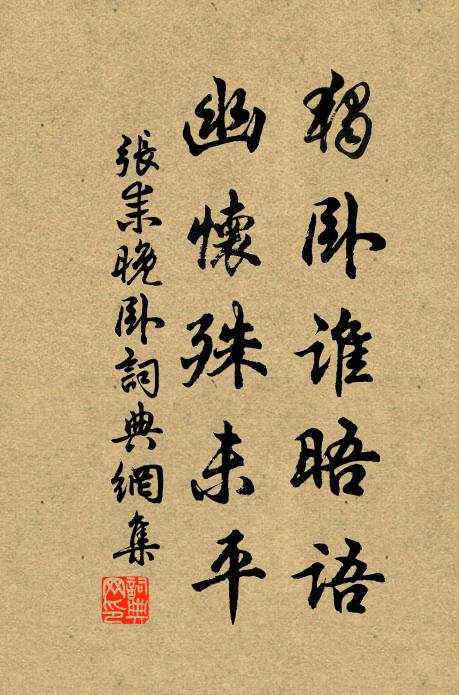 獨卧誰晤語
幽懷殊未平
張耒晚卧詞典網集
詞典
网印